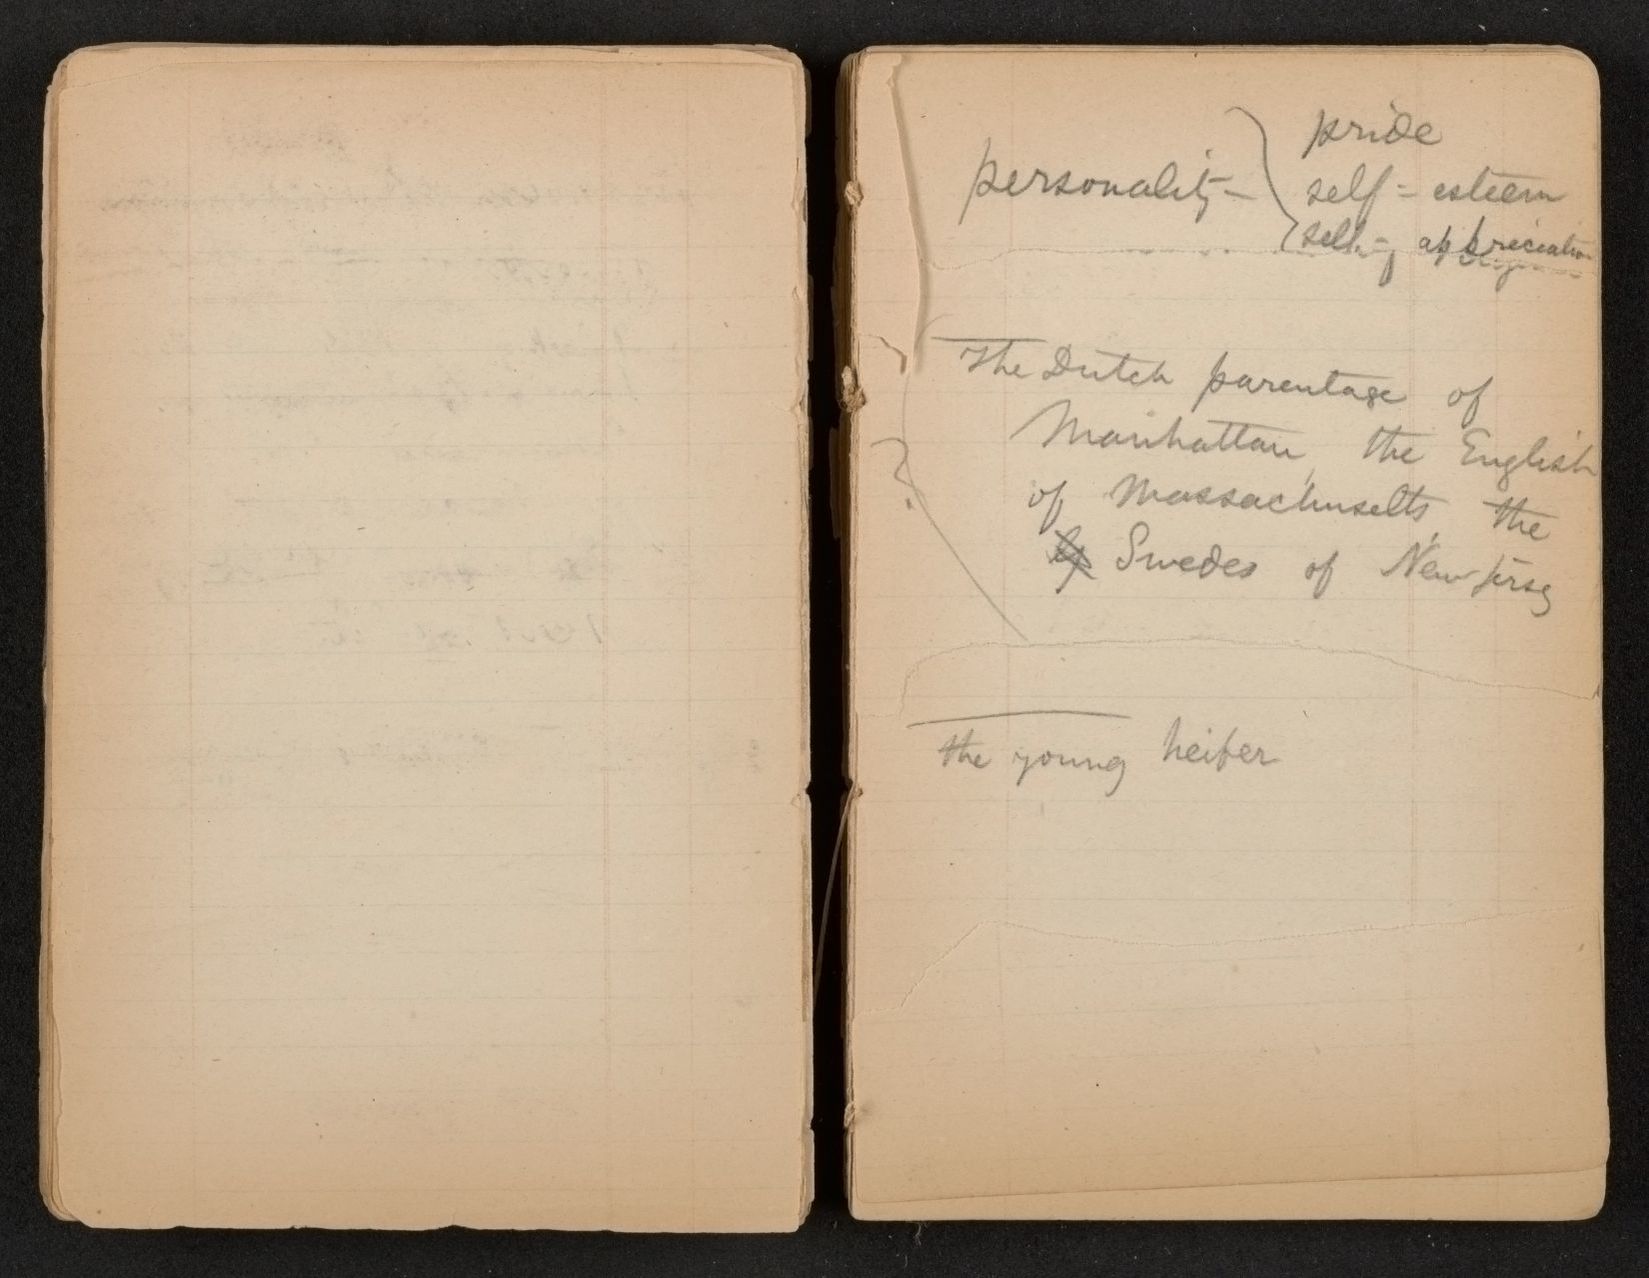 pride
personality – self-esteem
self-appreciation
The Dutch parentage of
Manhattan, the English
of Massachusetts, the
Swedes of New Jersey
?
the young heifer